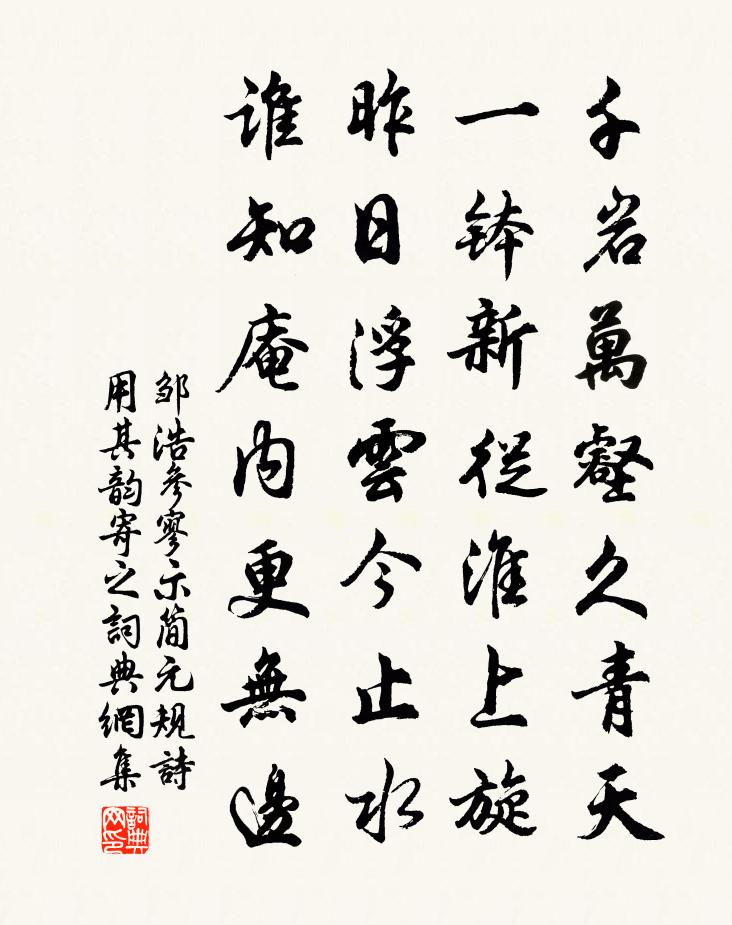 千岩萬壑久青天
一鉢新從淮上旋
昨日浮雲今止水
誰知庵内更無邊
邹浩參寥示簡元規詩
用其韵寄之詞典網集
詞典网印